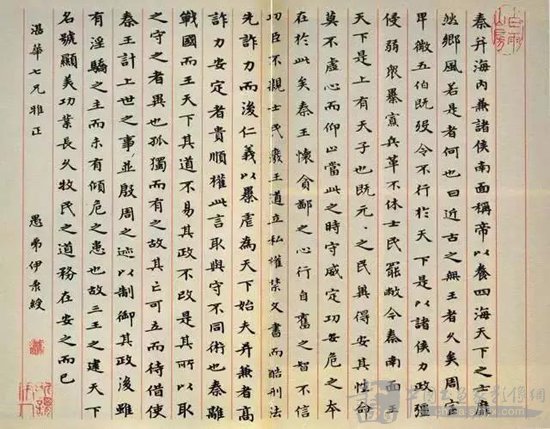 秦并海内兼諸侯南面稱帝以養四海天下之士斐
然鄉風若是者何也曰近古之無王者久矣周室
卑微五伯既殁令不行於天下是以諸侯力政彊
侵弱眾暴寡兵革不休士民罷敝今秦南面王
天下是上有天子也既元〻之民冀得安其性命
莫不虛心而仰上當此之時守威定功安危之本
在於此矣秦王懷貪鄙之心行自奮之智不信
功臣不親士民廢王道立私權禁文書而酷刑法
先詐力而後仁義以暴虐為天下始夫并兼者高
詐力安定者貴順權此言取與守不同術也秦離
戰國而王天下其道不易其政不改是其所以取
之守之者異也孤獨而有之故其亡可立而待借使
秦王計上世之事並殷周之迹以制御其政後雖
有淫驕之主而未有傾危之患也故三王之建天下
名號顯美功業長久牧民之道務在安之而已
湛華七兄雅正
愚弟伊綬